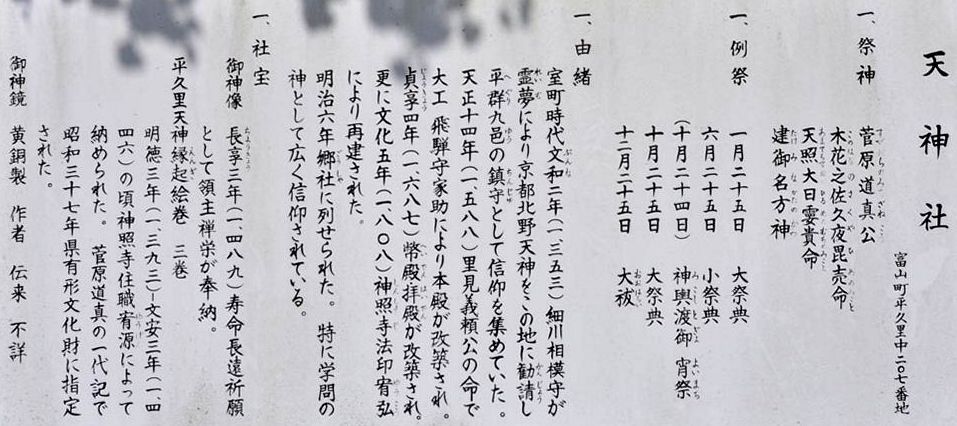 天神社
富山町平久里中二〇七番地
一、祭神
菅原道真公
木花之佐久夜毘売命
天照大日孁貴命
建御名方神
一、例祭
一月二十五日 大祭典
六月二十五日 小祭典
(十月二十四日) 神輿渡御 宵祭
十月二十五日 大祭典
十二月二十五日 大祓
一、由緒
室町時代文和二年(一、三五三)細川相模守が
霊夢により京都北野天神をこの地に勧請し
平群九邑の鎮守として信仰を集めていた。
天正十四年(一、五八八)里見義頼公の命で
大工 飛騨守家助により本殿が改築され、
貞享四年(一、六八七)幣殿拝殿が改築され、
更に文化五年(一、八〇八)神照寺法印宥弘
により再建された。
明治六年郷社に列せられた。 特に学問の
神として広く信仰されている。
一、社宝
御神像 長享三年(一、四八九)寿命長遠祈願
として領主禅栄が奉納。
平久里天神縁起絵巻 三巻
明徳三年(一、三九三)−文安三年(一、四
四六)の頃神照寺住職宥源によって
納められた。 菅原道真の一代記で
昭和三十七年県有形文化財に指定
された。
御神鏡 黄銅製 作者 伝来 不詳